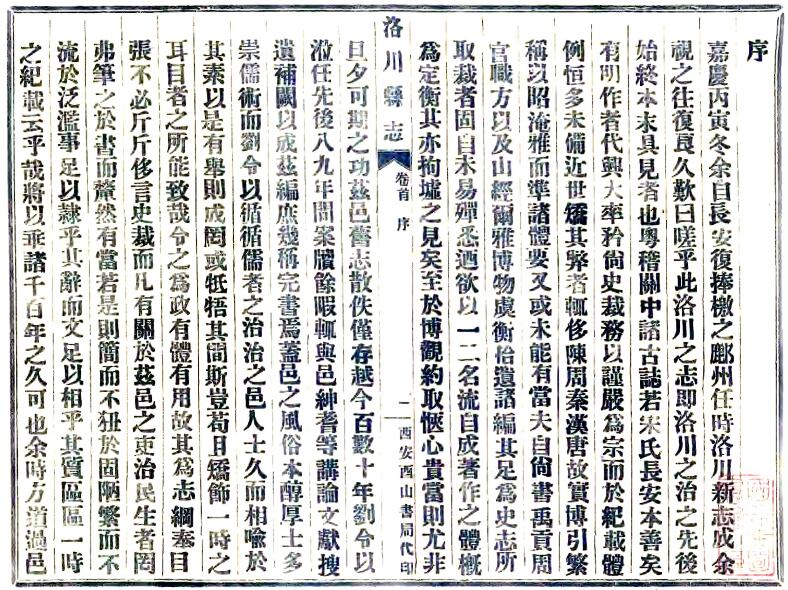 序
嘉慶丙寅冬余自長安復捧檄之鄜州任時洛川新志成余
視之往復良久歎曰嗟乎此洛川之志即洛川之治之先後
始終本末具見者也粵稽關中諸古誌若宋氏長安本善矣
有明作者代興大率矜尙史裁務以謹嚴爲宗而於紀載體
例恒多未備近世矯其弊者輒侈陳周秦漢唐故實博引繁
稱以昭淹雅而準諸體要又或未能有當夫自尙書禹貢周
官職方以及山經爾雅博物虞衡怡遺諸編其足爲史志所
取裁者固自未易殫悉迺欲以一二名流自成著作之體槪
爲定衡其亦拘墟之見矣至於博觀約取愜心貴當則尤非
洛川縣志
卷首
序
二
西安酉山書局代印
旦夕可期之功茲邑舊志散佚僅存越今百數十年劉令以
涖任先後八九年間案牘餘暇輒與邑紳耆等講論文獻搜
遺補闕以成茲編庶幾稱完書焉蓋邑之風俗本醇厚士多
崇儒術而劉令以循循儒者之治治之邑人士久而相喩於
其素以是有舉則成罔或牴牾其間斯豈苟且矯飾一時之
耳目者之所能致哉令之爲政有體有用故其爲志綱奉目
張不必斤斤侈言史裁而凡有關於茲邑之吏治民生者罔
弗筆之於書而釐然有當若是則簡而不狃於固陋繁而不
流於泛濫事足以隸乎其辭而文足以相乎其質區區一時
之紀載云乎哉將以乖諸千百年之久可也余時方道過邑